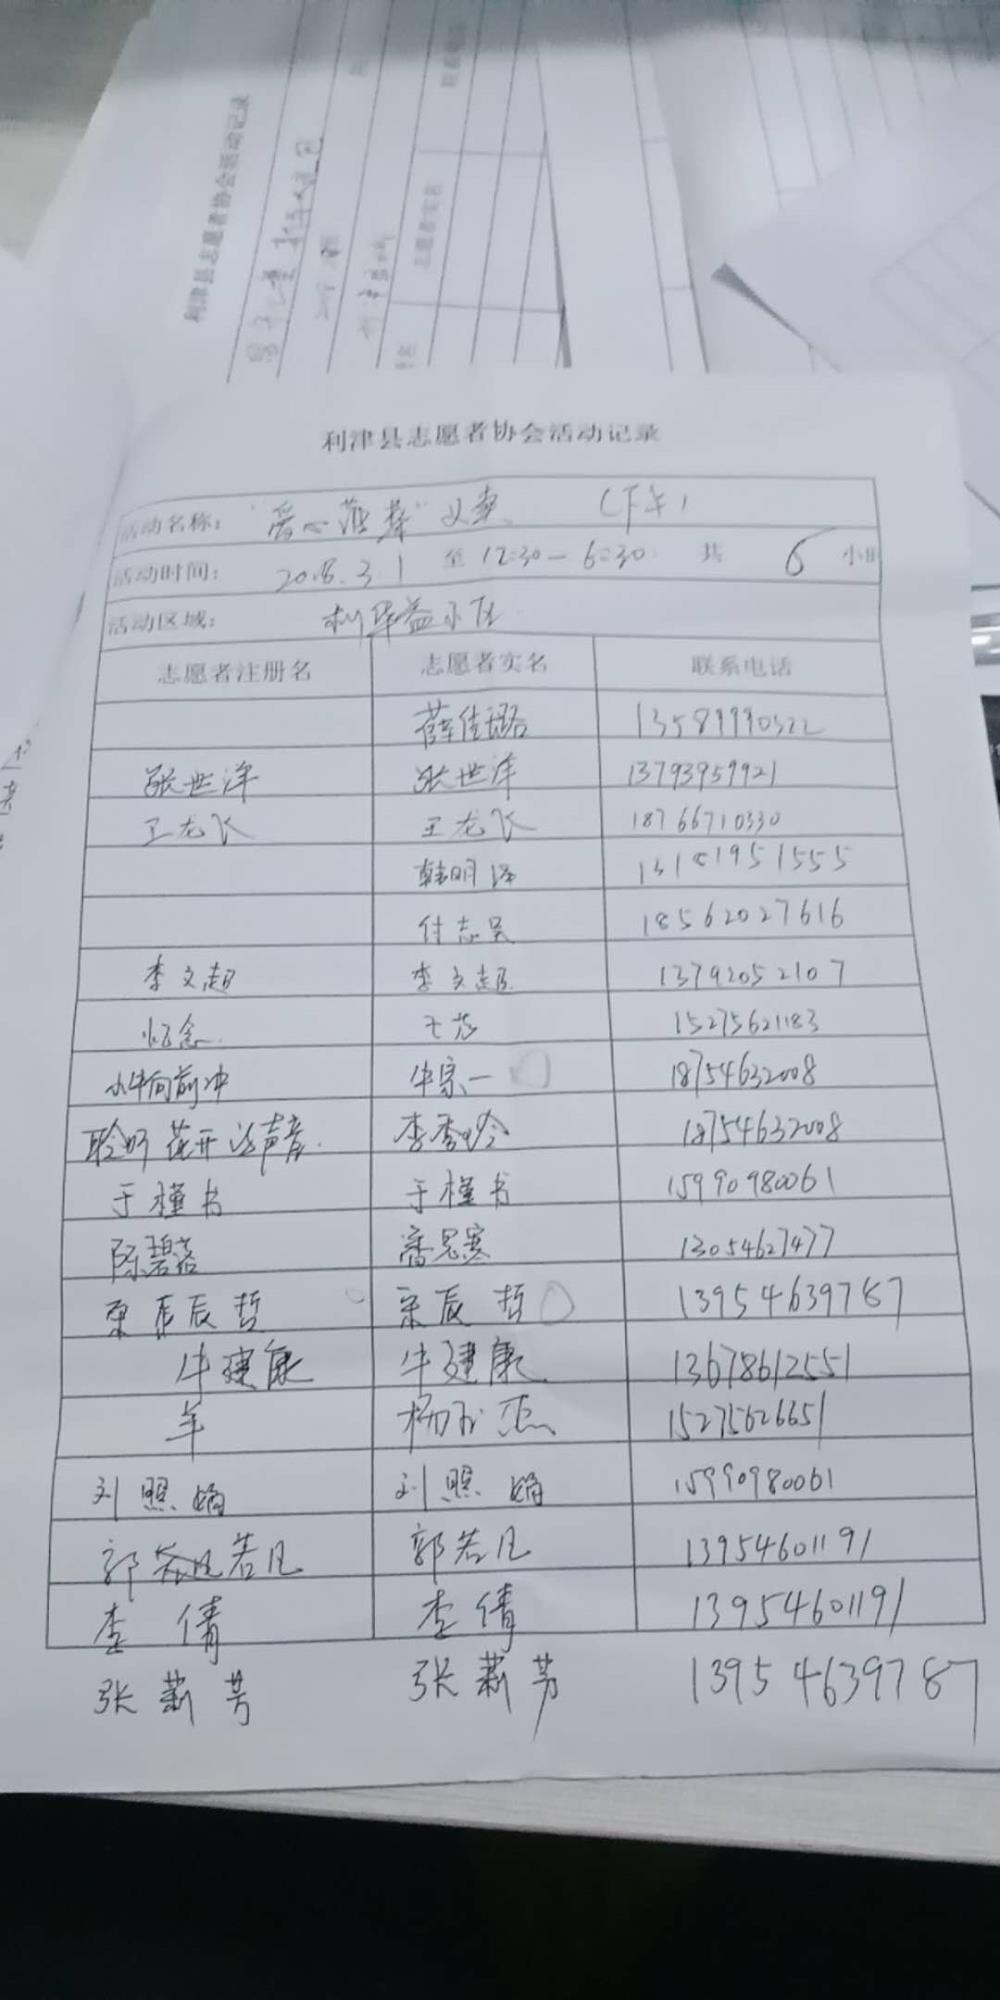 利津县志愿者协会活动记录
利津县志愿者协会活动记录
活动名称： "爱心菠菜"义卖 （下午）
活动时间： 2018.3.1 至 12:30—6:30 共 6 小时
活动区域： 利华益小区
志愿者注册名 志愿者实名 联系电话
薛佳璐 13589990322
张世洋 张世洋 13793959921
王龙飞 王龙飞 18766710330
韩明泽 13181951555
付志昊 18562027616
李文超 李文超 13792052107
怀念 15275621183
小牛向前冲 牛家一 18754632008
聆听花开的声音 李秀玲 18754632008
于槿书 于槿书 15990980061
陈碧落 潘思寒 13054627477
荣辰哲 荣辰哲 13954639787
牛建康 牛建康 13678612551
羊 杨玉杰 15275626651
刘照娟 刘照娟 15990980061
郭若凡 郭若凡 13954601191
李倩 李倩 13954601191
张新芳 张新芳 13954639787